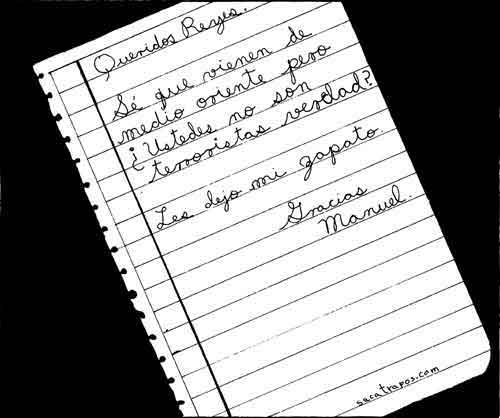 Queridos Reyes.
Sé que vienen de
medio oriente pero
¿Ustedes no son
terroristas verdad?
Les dejo mi zapato.
Gracias
Manuel.
sacatrapos.com